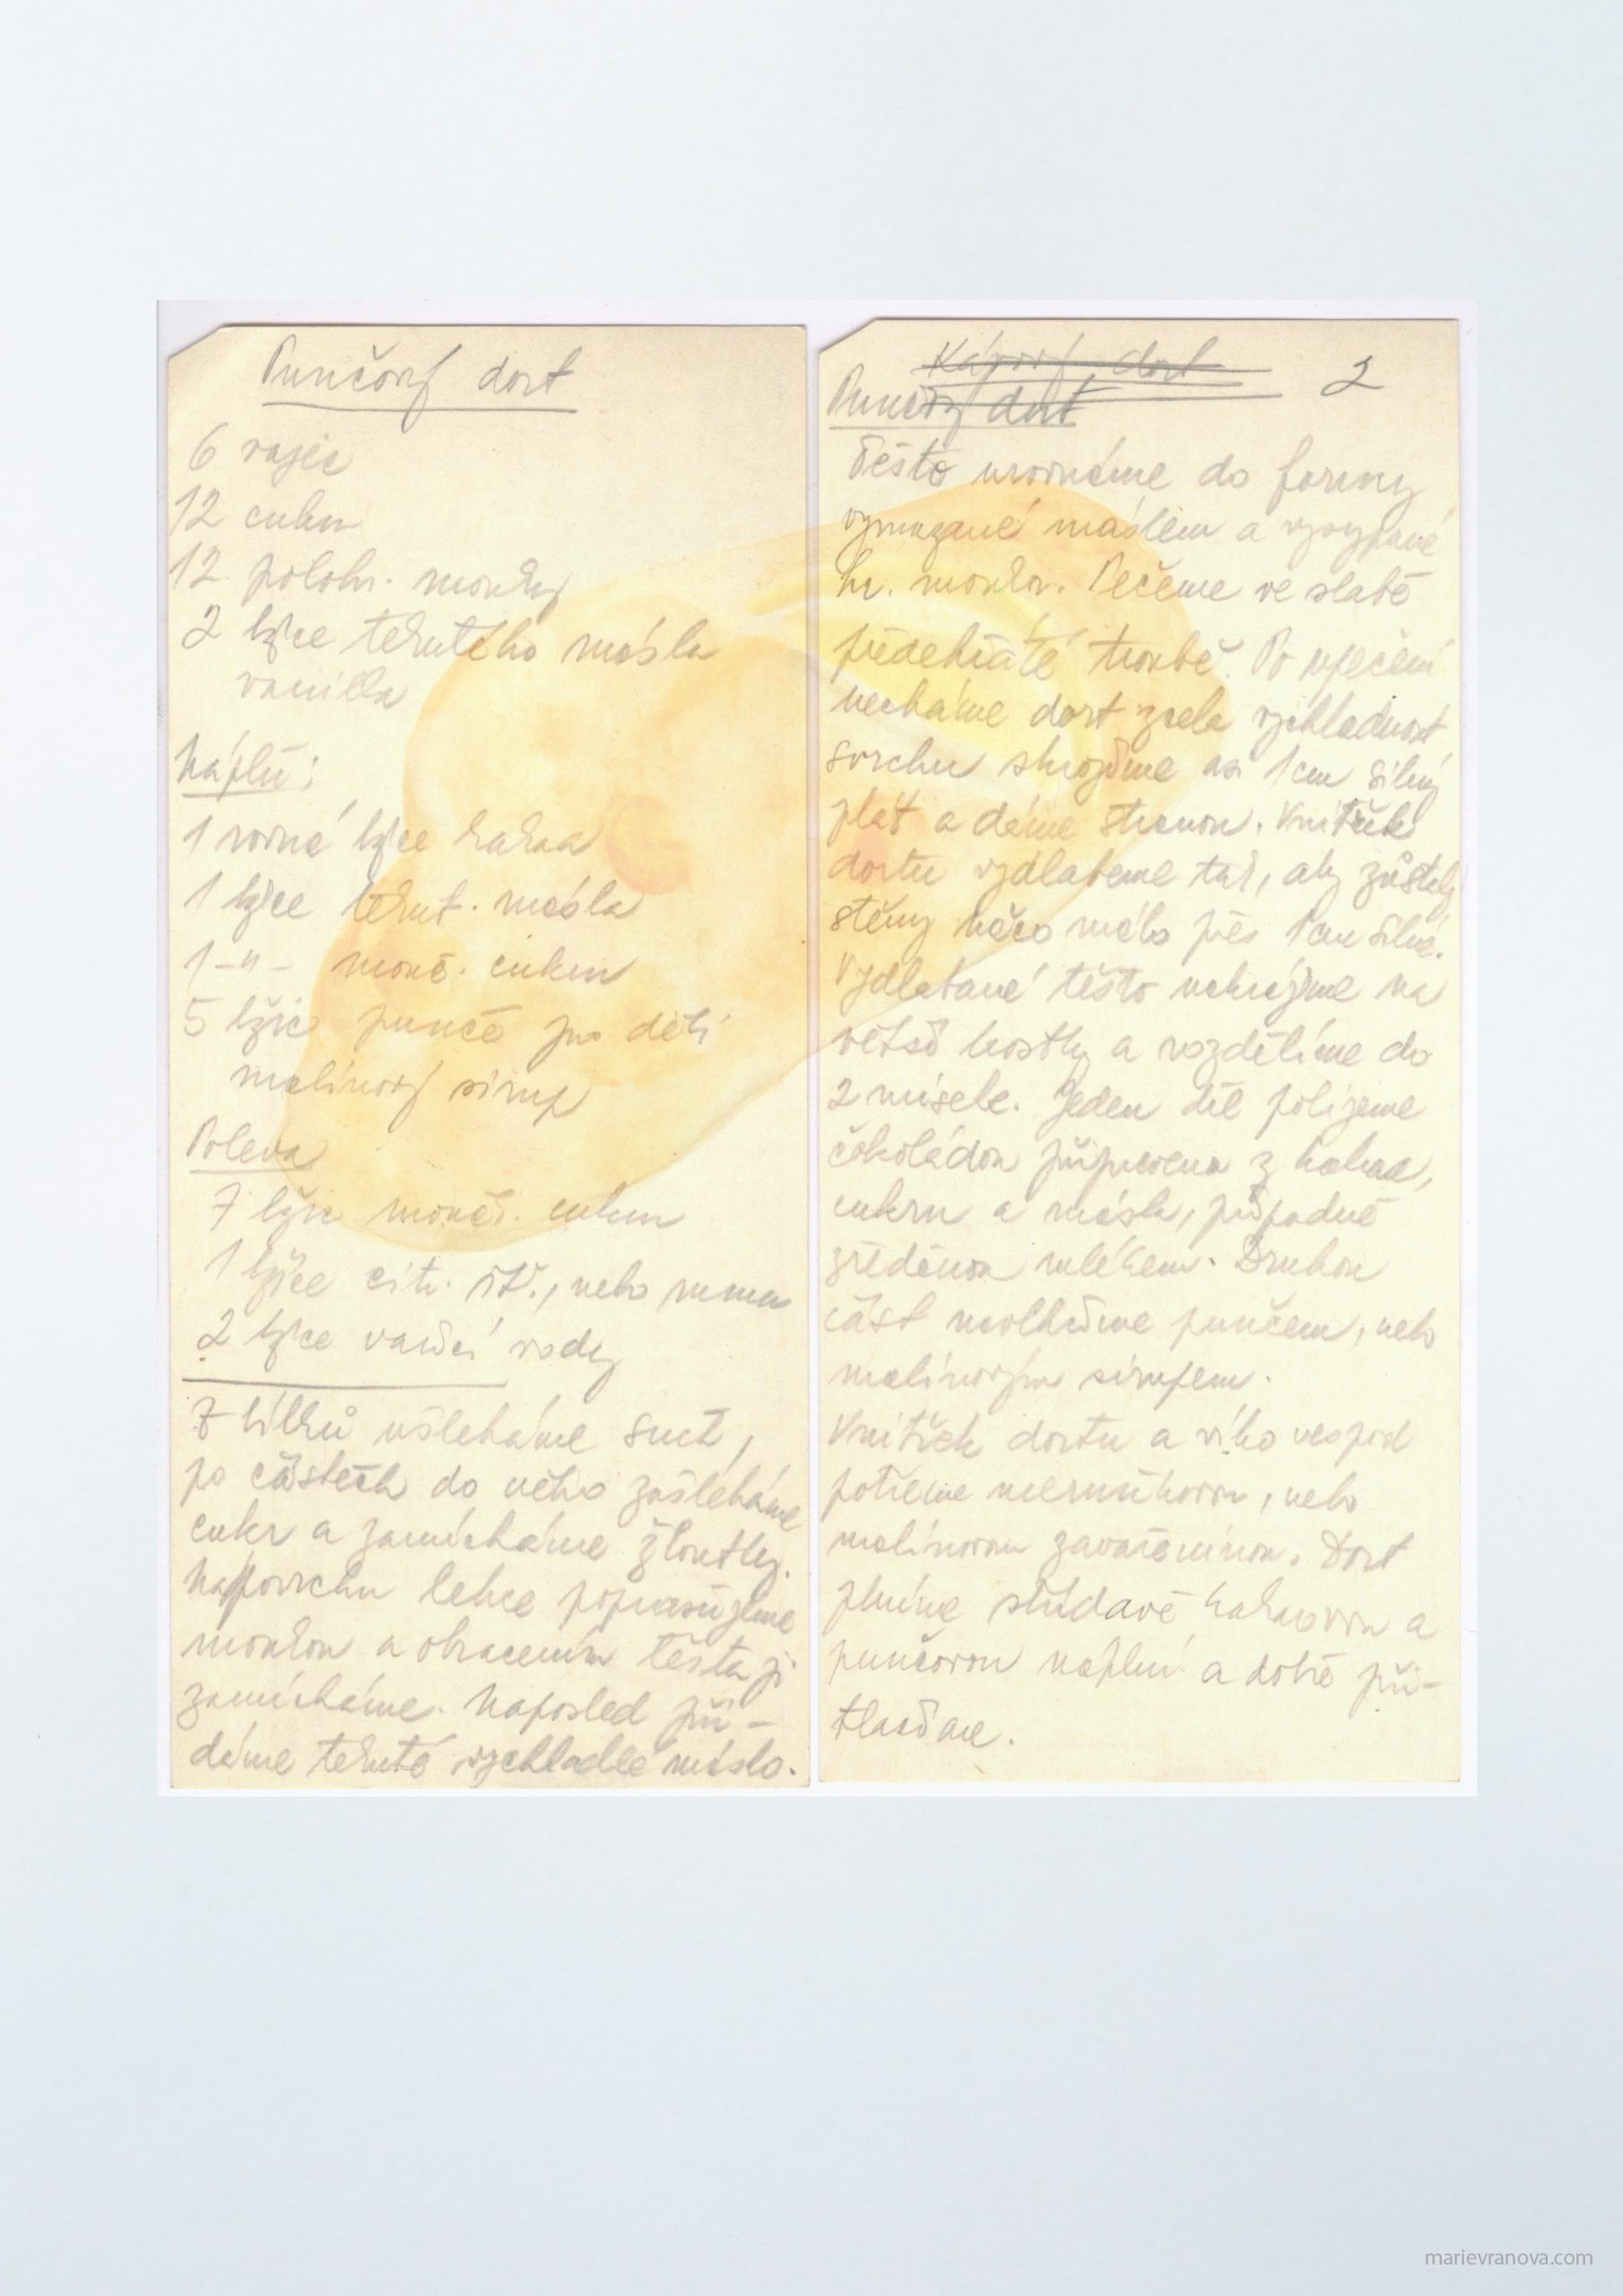 Punčový dort
6 vajec
12 cukru
12 polohr. mouky
2 lžíce tekutého másla
vanilka
Náplň:
1 rovná lžíce kakaa
1 lžíce tekut. másla
1 -"- mouč. cukru
5 lžic punče pro děti
malinový sirup
Poleva
7 lžic mouč. cukru
1 lžíce citr. šť., nebo rumu
2 lžíce vařící vody
Z bílků ušleháme sníh,
po částech do něho zašleháme
cukr a zamícháme žloutky.
Na povrchu lehce poprašujeme
moukou a obracením těsta ji
zamícháme. Naposled při-
dáme tekuté vychladlé máslo.
Kávový dort 2
Punčový dort
Těsto urovnáme do formy
vymazané máslem a vysypané
hr. moukou. Pečeme ve slabě
předehřáté troubě. Po upečení
necháme dort zcela vychladnout
svrchu skrojíme asi 1 cm silný
plát a dáme stranou. Vnitřek
dortu vydlabeme tak, aby zůstaly
stěny něco málo přes 1 cm silné.
Vydlabané těsto nakrájíme na
větší kostky a rozdělíme do
2 misek. Jeden díl polijeme
čokoládou připravenou z kakaa,
cukru a másla, případně
zředěnou mlékem. Druhou
část navlhčíme punčem, nebo
malinovým sirupem.
Vnitřek dortu a víko vespod
potřeme meruňkovou, nebo
malinovou zavařeninou. Dort
plníme střídavě kakaovou a
punčovou náplní a dobře při-
tlačíme.
marievranova.com